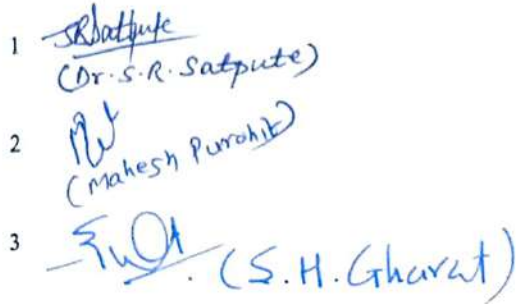 1 SRSatpute
(Dr. S. R. Satpute)
2
(Mahesh Purohit)
3
(S. H. Gharat)